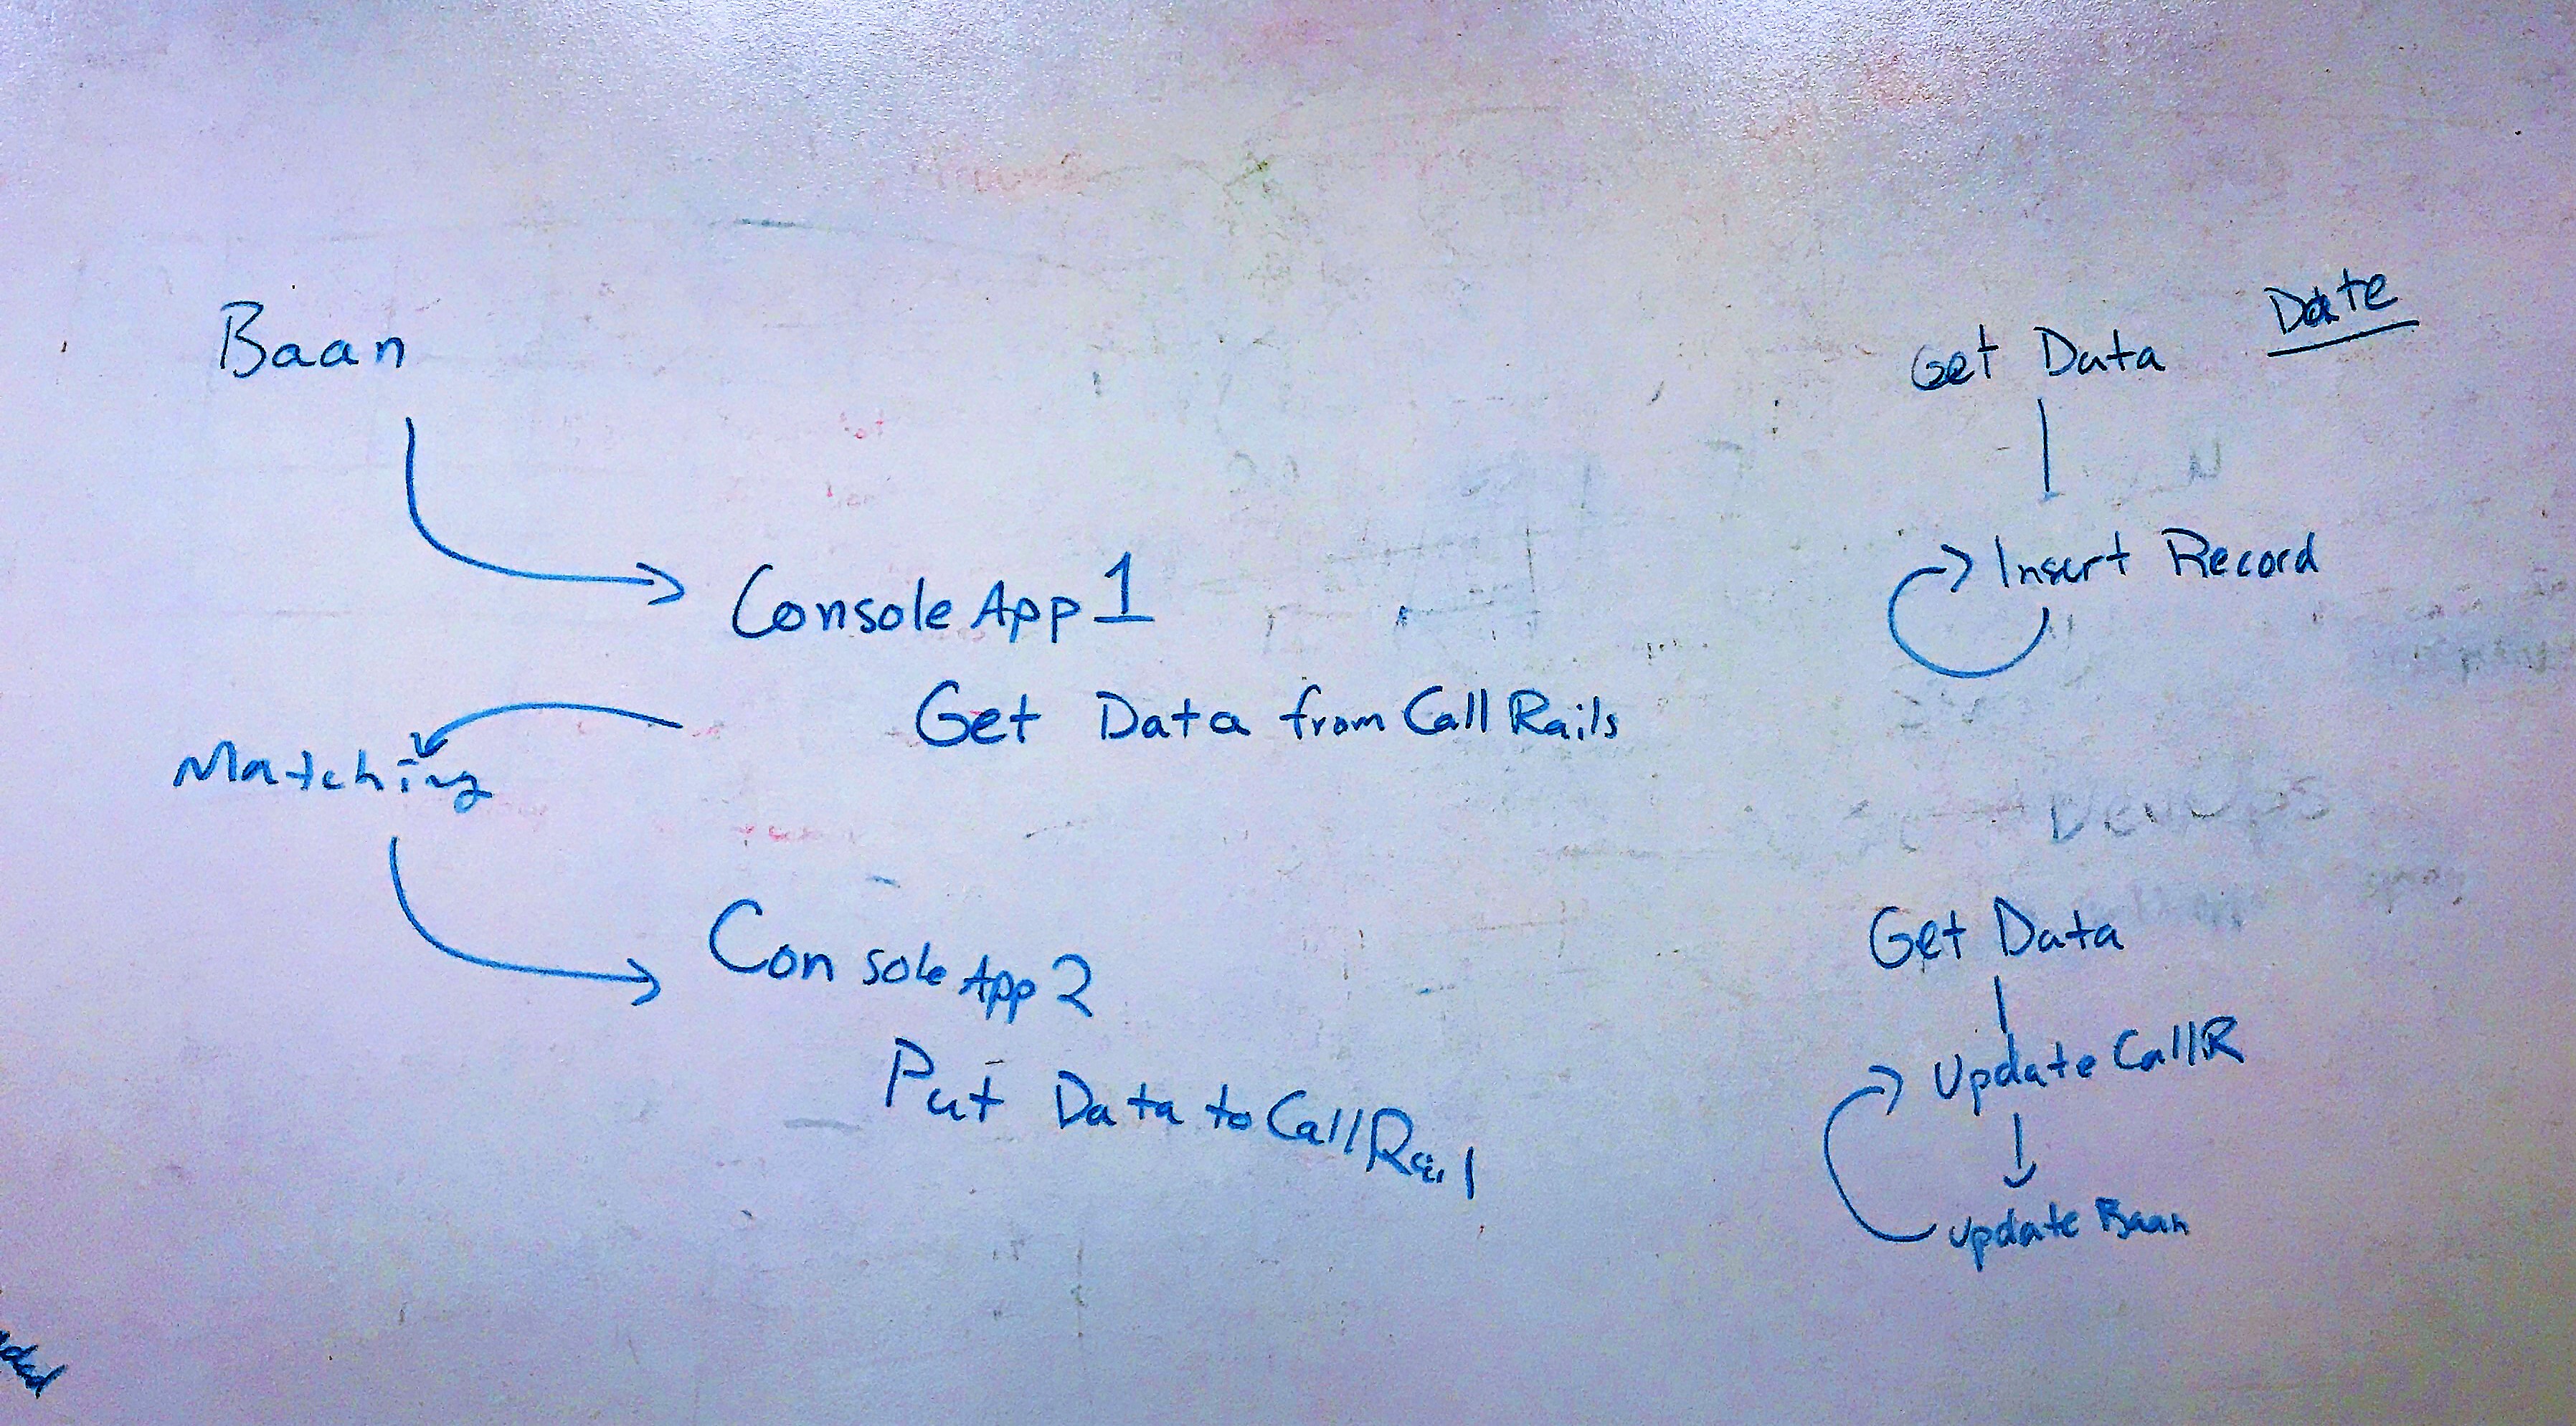 Baan
Console App 1
Get Data from Call Rails
Matching
Console App 2
Put Data to CallRail
Get Data Date
Insert Record
DevOps
Get Data
Update CallR
Update Baan